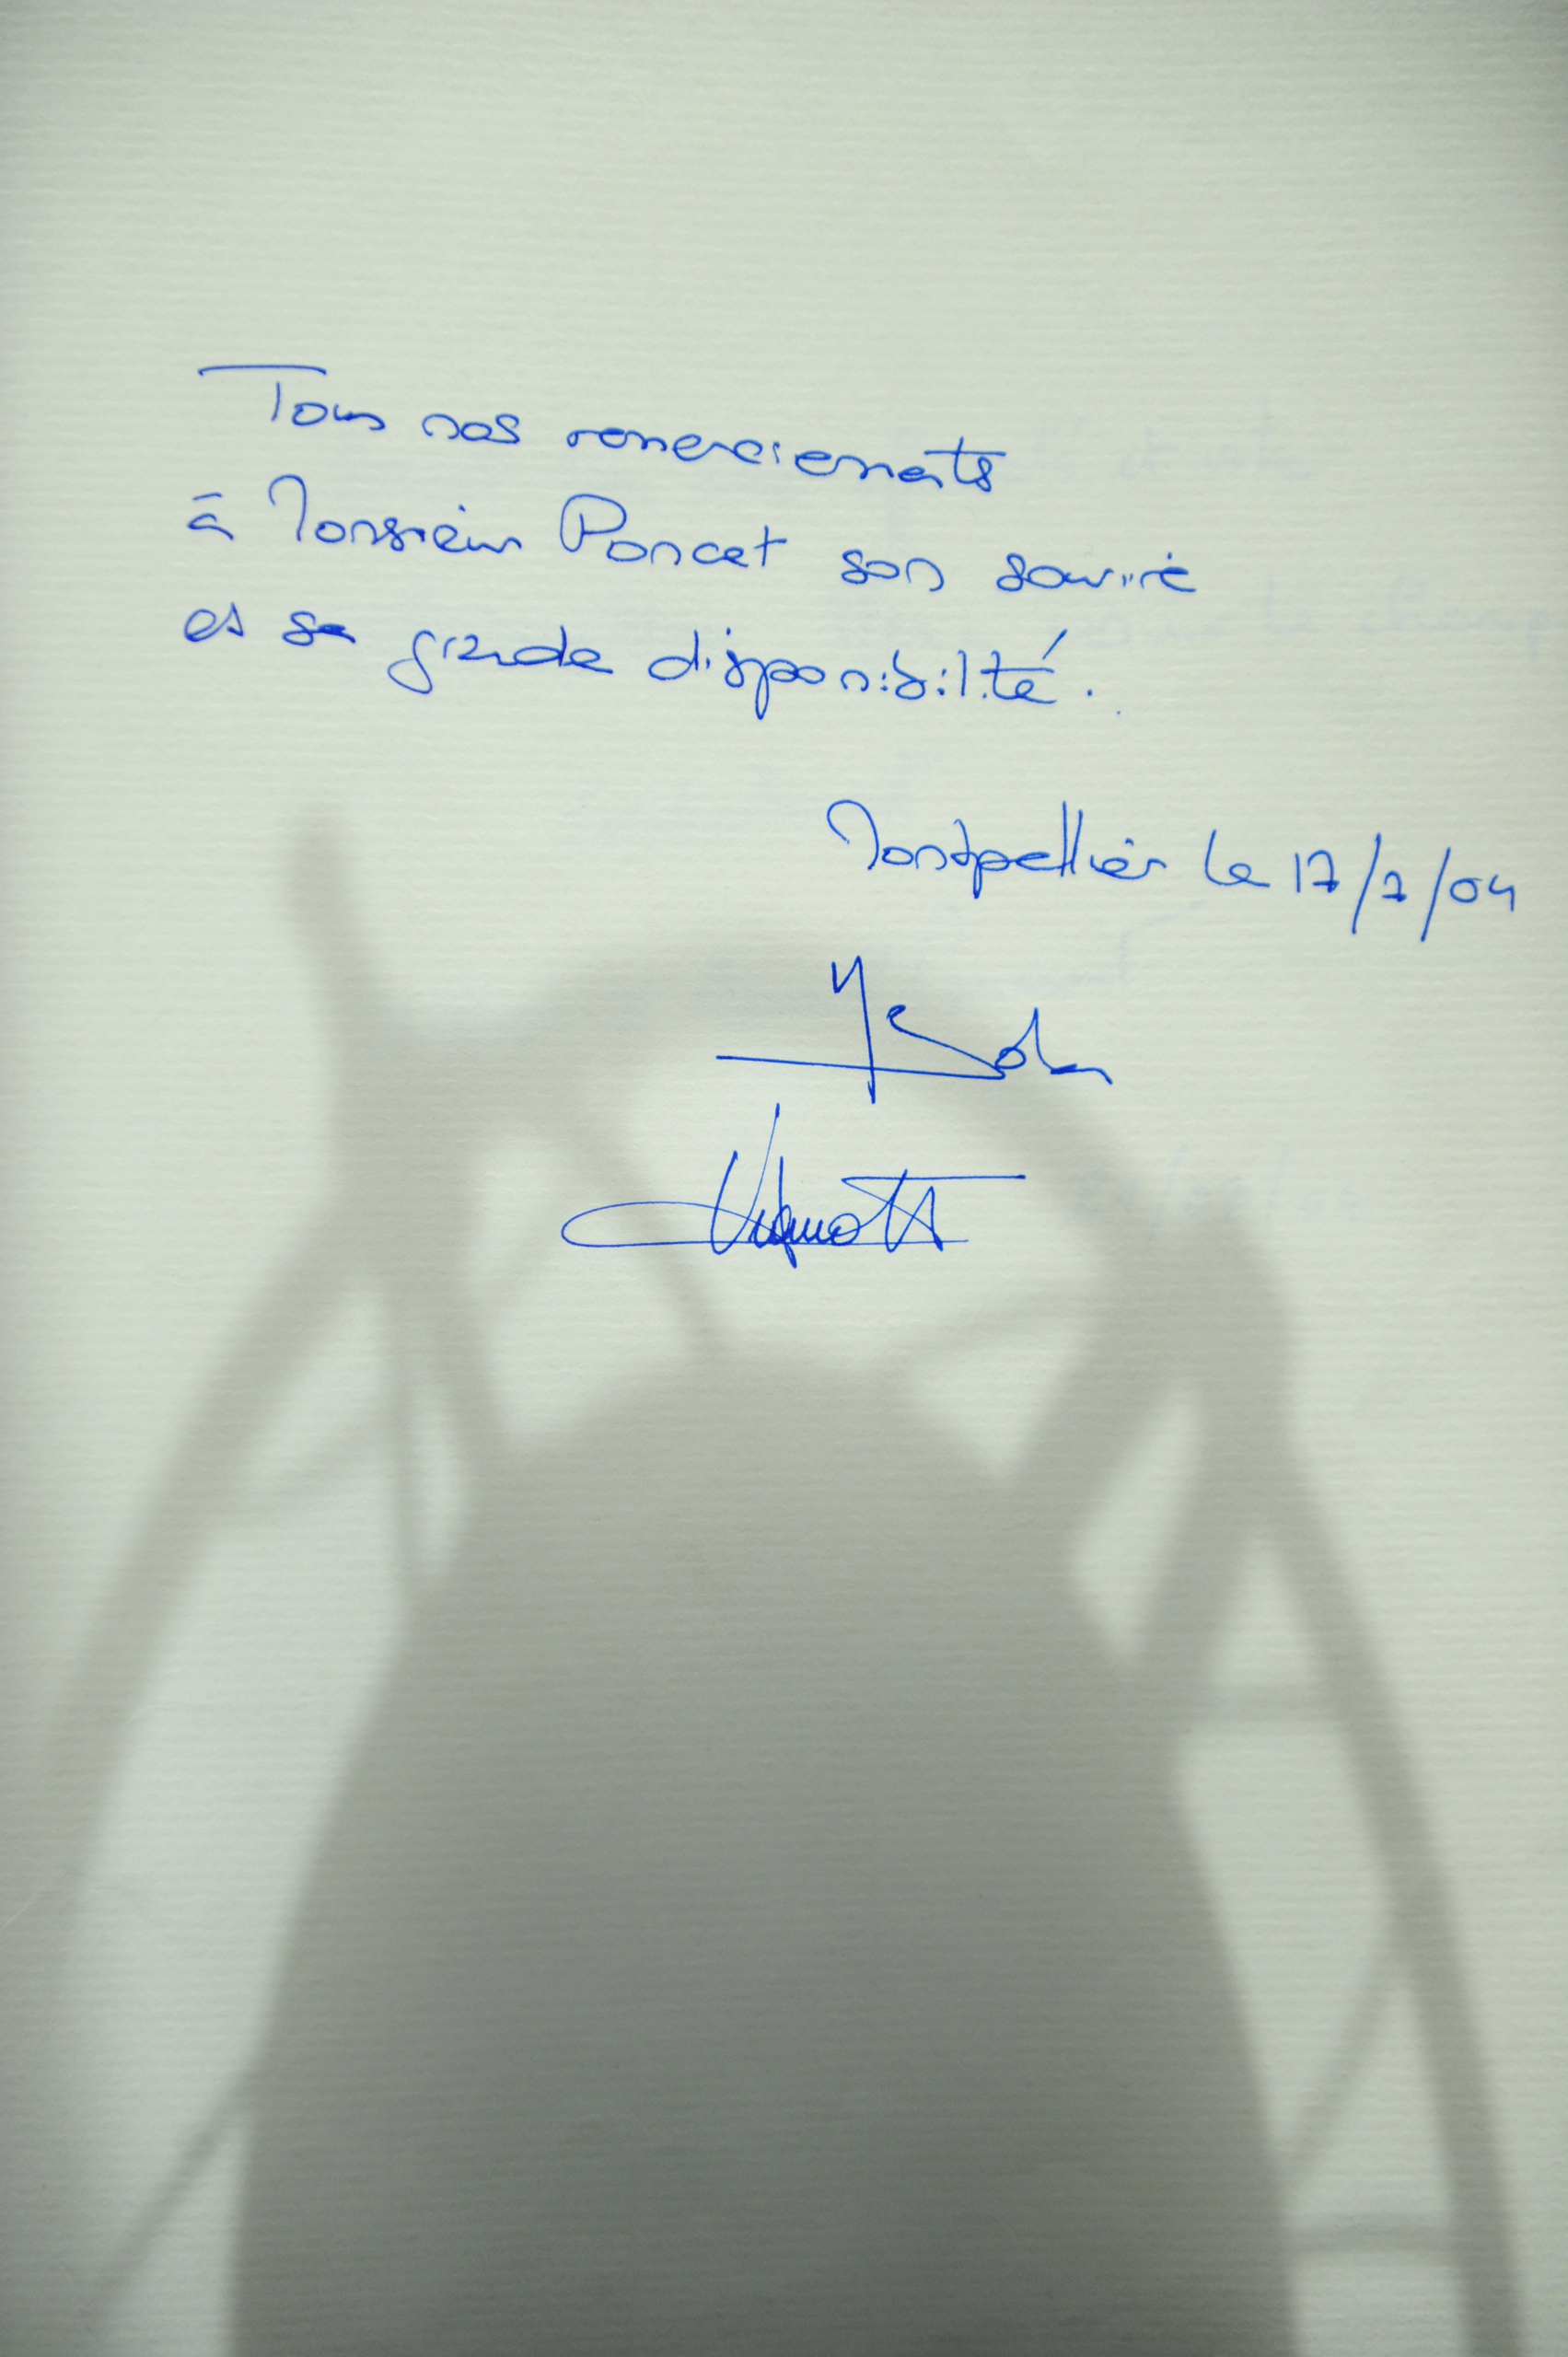 Tous nos remerciements
à Monsieur Poncet son sourire
et sa grande disponibilité.
Montpellier le 17/7/04